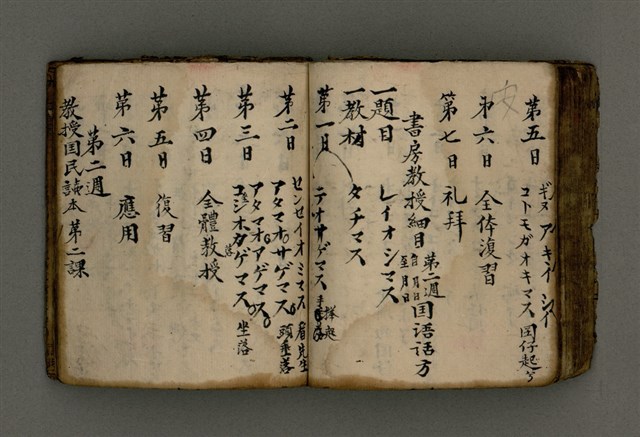 第五日 ギヌ アキイ シイ
コトモガオキマス 囝仔起々
第六日 全体復習
第七日 礼拜
書房教授細目 第二週 自 月 日 至 月 日 国语话方
一題目 レイオシマス
一教材 タチマス
第一日 テオサゲマス
第二日 センセイオミマス 看先生
アタマオサゲマス 頭垂落
第三日 アタマオアゲマス
コシオカゲマス 坐落
第四日 全體教授
第五日 復習
第六日 應用
第二週
教授国民読本 第二課